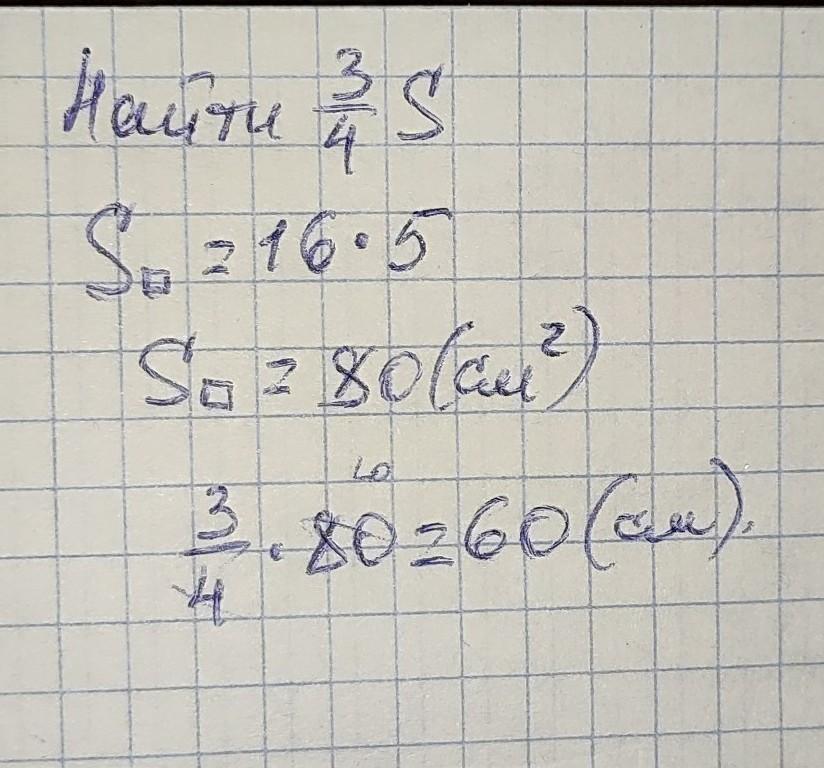 Найти 3/4 S
S□ = 16·5
S□ = 80 (см²)
3/4 · 80 = 60 (см).